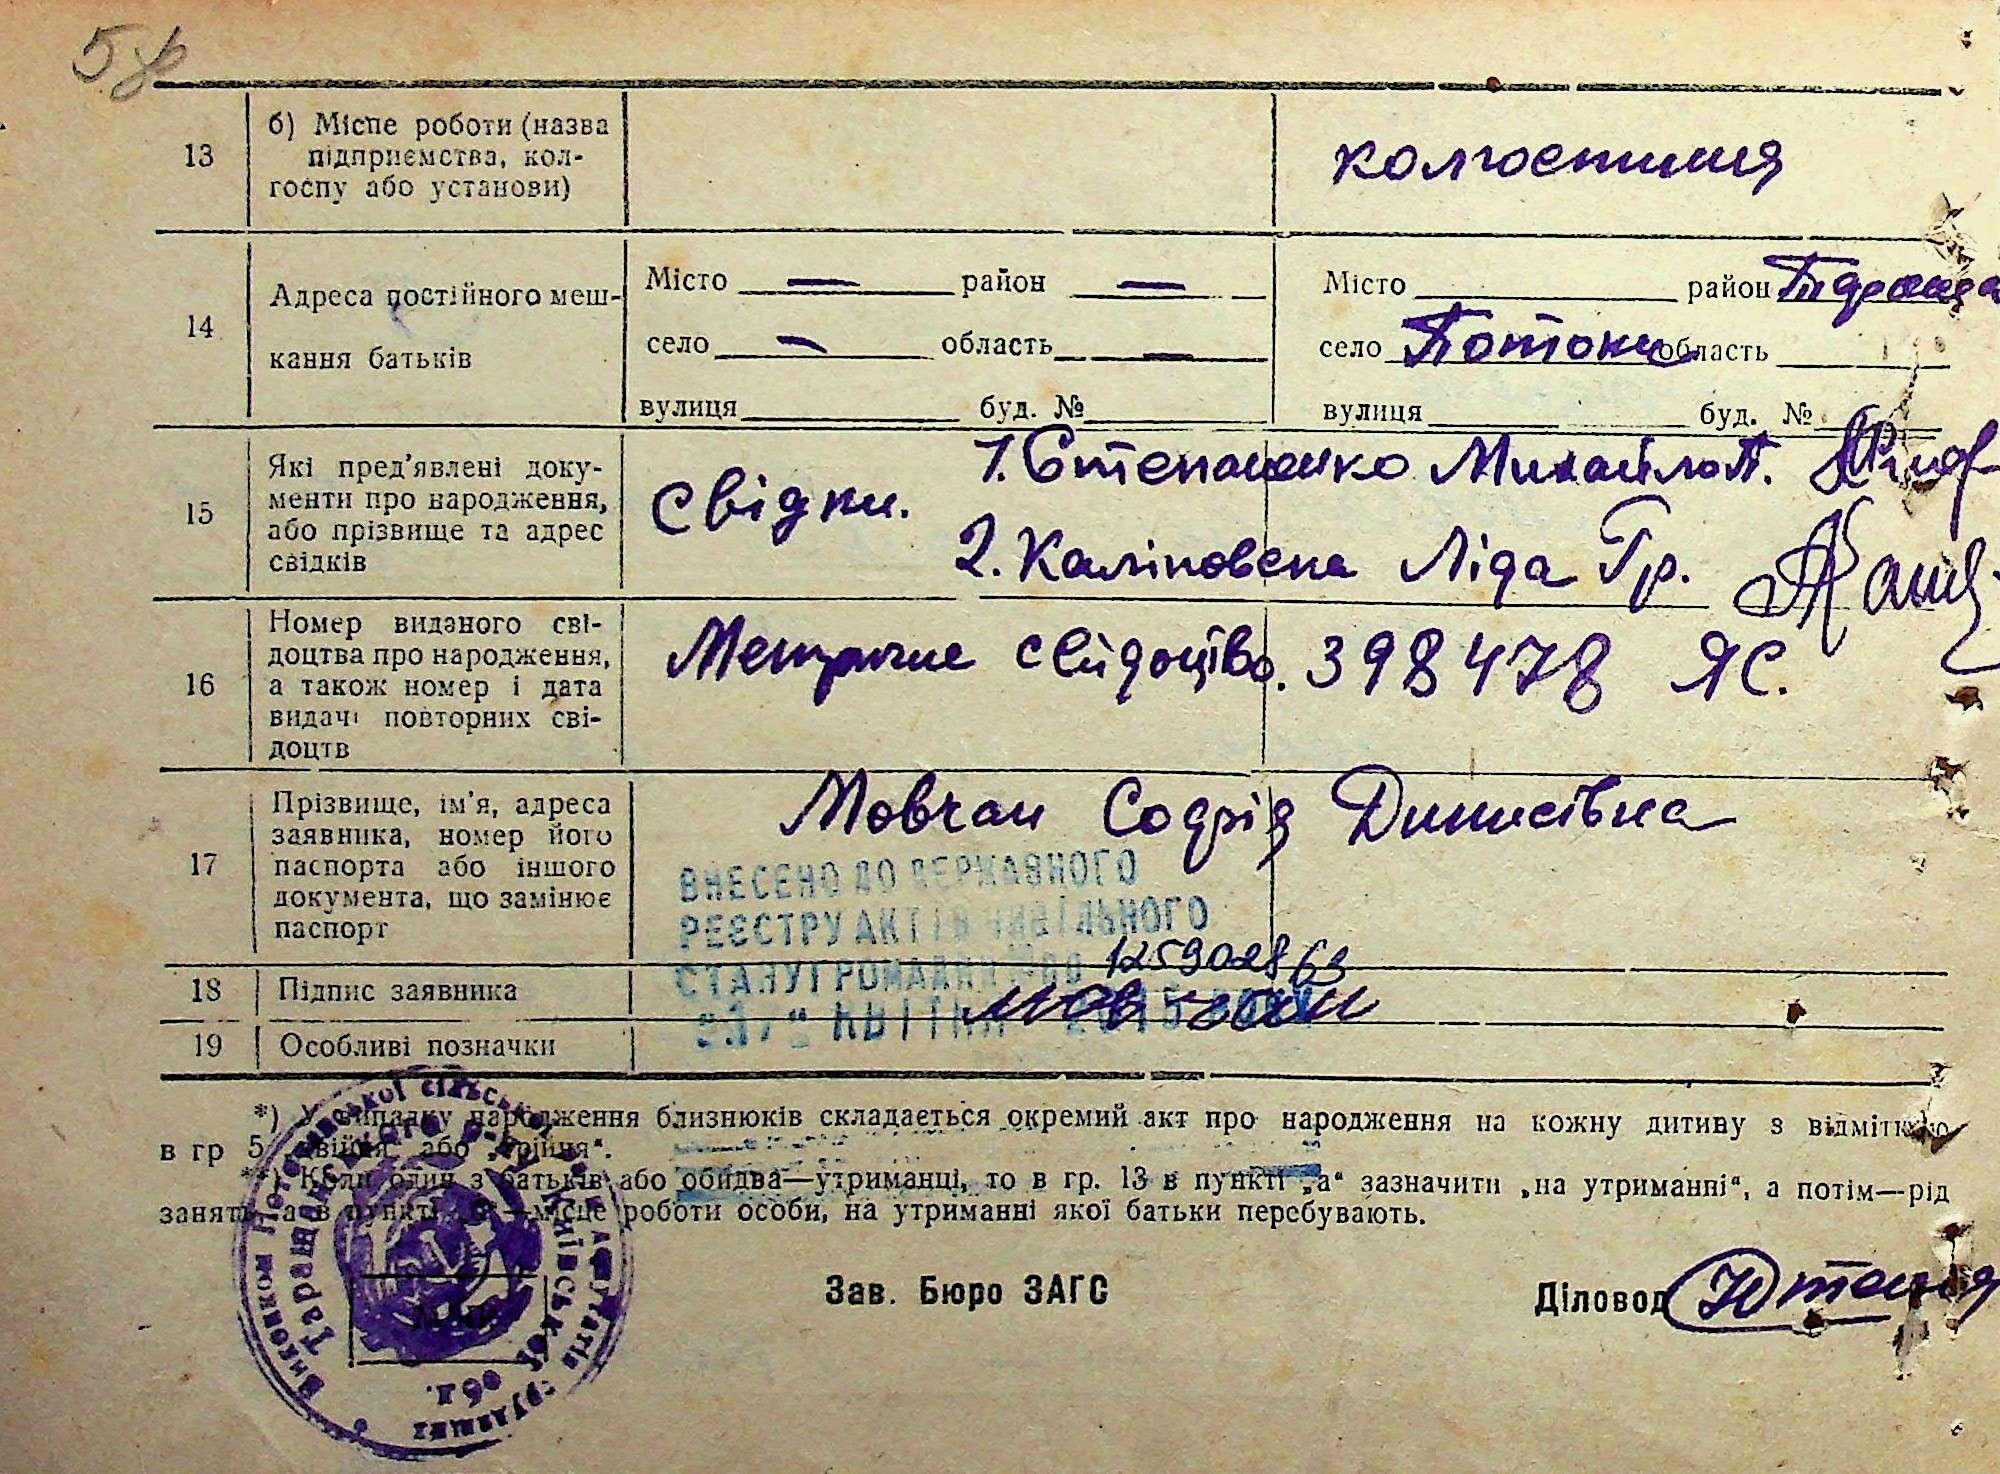 13
б) Місце роботи (назва
підприємства, кол-
госпу або установи)
колгоспниця
14
Адреса постійного меш-
кання батьків
Місто — район —
село — область —
вулиця буд. №
Місто район
село Потоки область
вулиця буд. №
15
Які пред'явлені доку-
менти про народження,
або прізвище та адрес
свідків
Свідки.
1. Степаненко Михайло П.
2. Каліновська Ліда Гр.
16
Номер виданого сві-
доцтва про народження,
а також номер і дата
видачі повторних сві-
доцтв
Метричне свидоцтво. 398478 ЯС.
17
Прізвище, ім'я, адреса
заявника, номер його
паспорта або іншого
документа, що замінює
паспорт
Мовчан Денисівна
ВНЕСЕНО ДО ДЕРЖАВНОГО
РЕЄСТРУ АКТІВ ЦИВІЛЬНОГО
СТАНУ ГРОМАДЯН
18
Підпис заявника
Мовчан
19
Особливі позначки
*) У випадку народження близнюків складається окремий акт про народження на кожну дитину з відміткою
в гр 5 „двійня“ або „трійня“.
**) Коли один з батьків або обидва—утриманці, то в гр. 13 в пункті „а“ зазначити „на утриманні“, а потім—рід
занять, а в пункті „б“—місце роботи особи, на утриманні якої батьки перебувають.
Зав. Бюро ЗАГС
Діловод